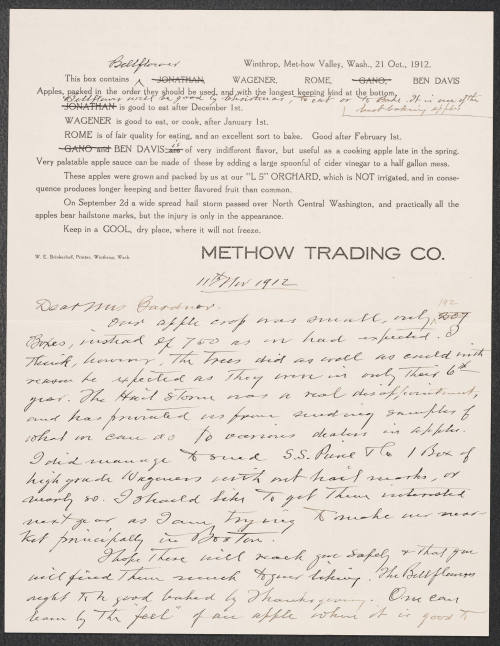 Bellflower
Winthrop, Met-how Valley, Wash., 21 Oct., 1912.
This box contains JONATHAN, WAGENER, ROME, GANO, BEN DAVIS
Apples, packed in the order they should be used, and with the longest keeping kind at the bottom.
Bellflower will be good by Christmas, to eat or to bake. It is one of the best baking apples
JONATHAN is good to eat after December 1st.
WAGENER is good to eat, or cook, after January 1st.
ROME is of fair quality for eating, and an excellent sort to bake. Good after February 1st.
GANO and BEN DAVIS are is of very indifferent flavor, but useful as a cooking apple late in the spring.
Very palatable apple sauce can be made of these by adding a large spoonful of cider vinegar to a half gallon mess.
These apples were grown and packed by us at our "L 5" ORCHARD, which is NOT irrigated, and in conse-
quence produces longer keeping and better flavored fruit than common.
On September 2d a wide spread hail storm passed over North Central Washington, and practically all the
apples bear hailstone marks, but the injury is only in the appearance.
Keep in a COOL, dry place, where it will not freeze.
W. E. Brinkerhoff, Printer, Winthrop, Wash.
METHOW TRADING CO.
11th Nov 1912
Dear Mrs Gardner.
Our apple crop was small, only 192
Boxes, instead of 700 as we had expected. I
think, however, the trees did as well as could with
reason be expected as they were in only their 6th
year. The Hail Storm was a real disappointment,
and has prevented us from sending samples of
what we can do to various dealers in apples.
I did manage to send S.S. Pierce & Co 1 Box of
high grade Wageners with out hail marks, or
nearly so. I should like to get them interested
next year, as I am trying to make our mar-
ket principally in Boston.
I hope these will reach you safely & that you
will find them much to your liking. The Bellflowers
ought to be good baked by Thanksgiving. One can
learn by the "feel" of an apple when it is good to